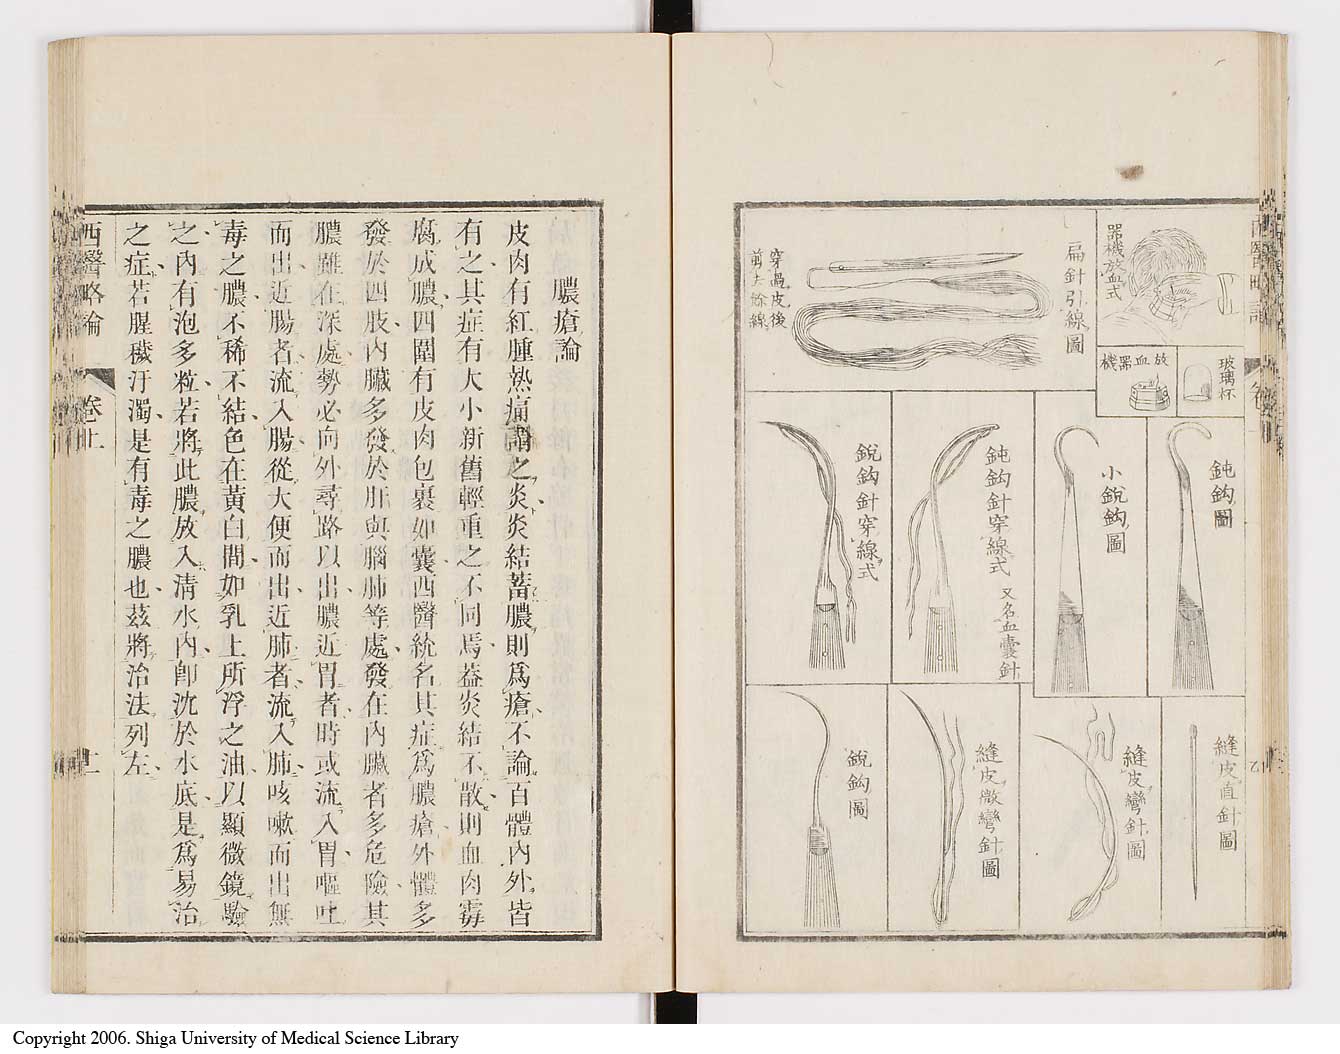 西醫略論
卷上
器機放血式
放血器機
玻璃杯
扁針引線圖
穿過皮後
前去餘線
鈍鈎圖
小銳鈎圖
鈍鈎針穿線式
又名血囊針
銳鈎針穿線式
縫皮直針圖
縫皮彎針圖
縫皮微彎針圖
銳鈎圖
膿瘡論
皮肉有紅腫熱痛謂之炎炎結蓄膿則爲瘡不論百體內外皆
有之其症有大小新舊輕重之不同焉葢炎結不散則血肉霉
腐成膿四圍有皮肉包裹如囊西醫統名其症爲膿瘡外體多
發於四肢內臟多發於肝與腦肺等處發在內臟者多危險其
膿雖在深處勢必向外尋路以出膿近胃者時或流入胃嘔吐
而出近腸者流入腸從大便而出近肺者流入肺咳嗽而出無
毒之膿不稀不結色在黃白間如乳上所浮之油以顯微鏡驗
之內有泡多粒若將此膿放入清水內卽沈於水底是爲易治
之症若腥穢汙濁是有毒之膿也茲將治法列左
西醫略論
卷上
Copyright 2006. Shiga University of Medical Science Library